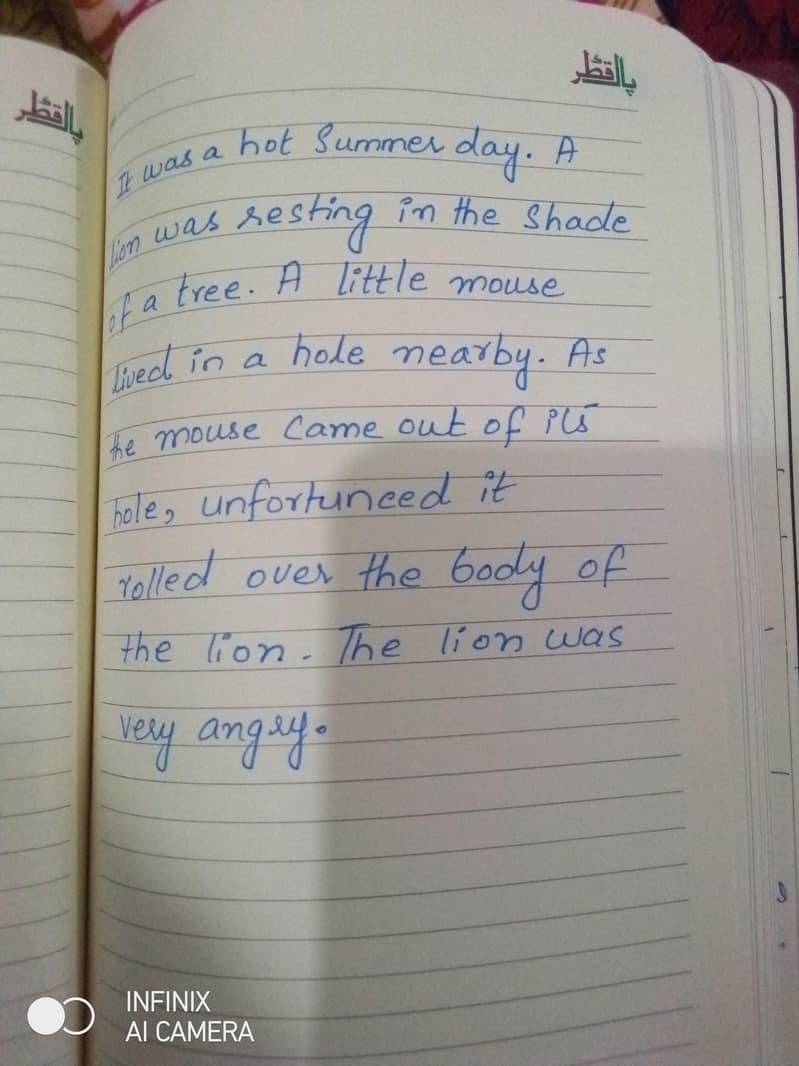 پاالقطر
پاالقطر
It was a hot Summer day. A
lion was resting in the Shade
of a tree. A little mouse
lived in a hole nearby. As
the mouse Came out of its
hole, unfortunced it
rolled over the body of
the lion. The lion was
very angry.
INFINIX
AI CAMERA